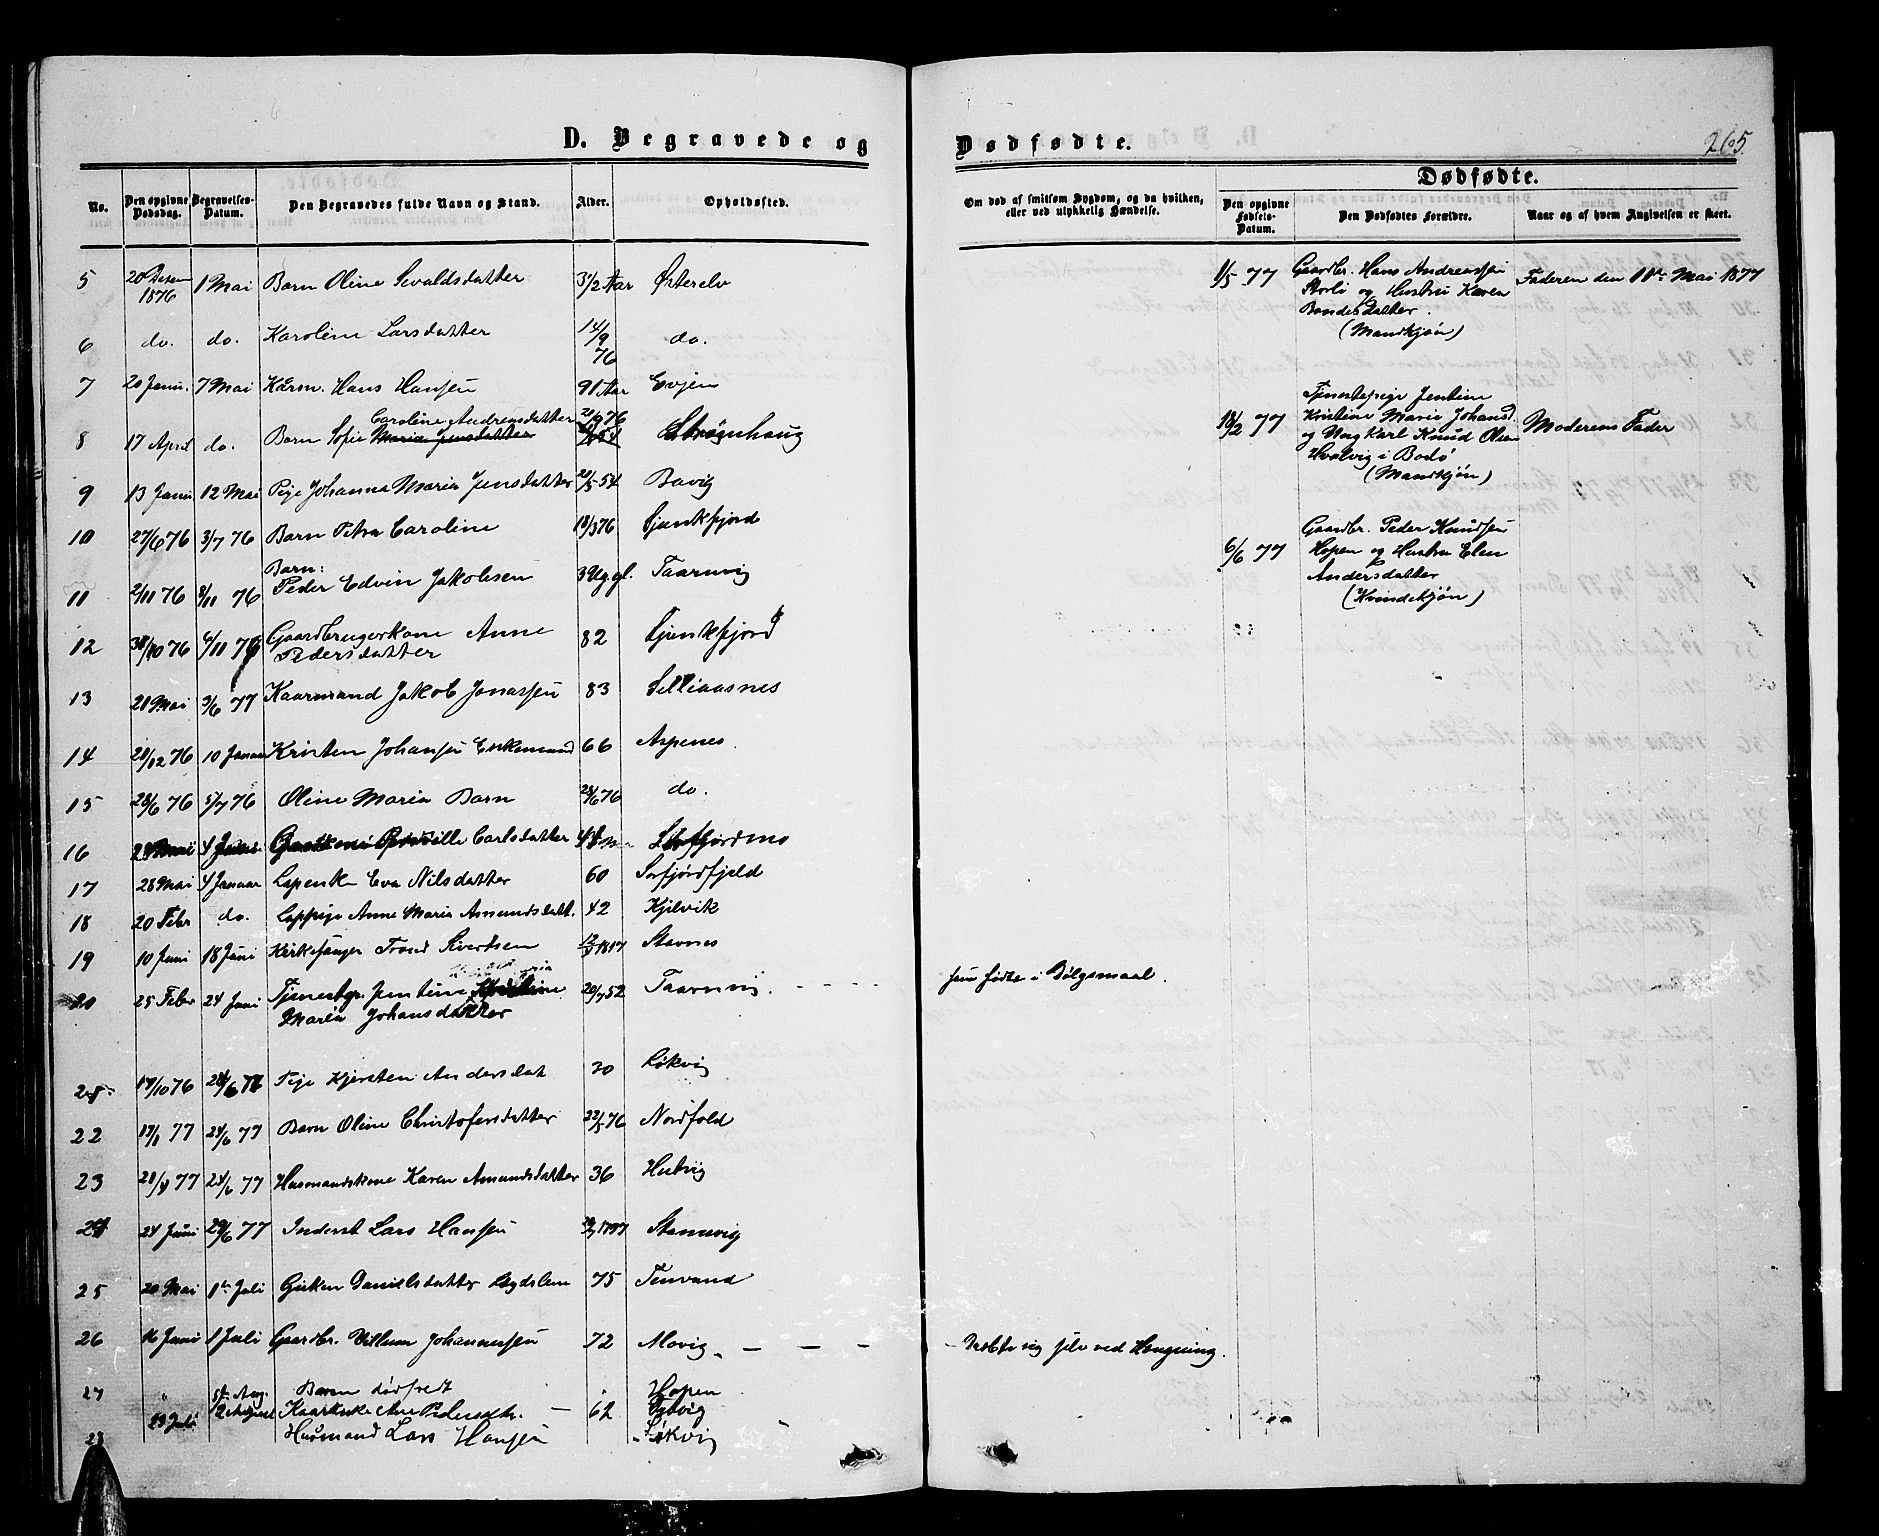 D. Begravede og Dødfødte.
265.
No.
Den opgivne Dødsdag.
Begravelses-Datum.
Den Begravedes fulde Navn og Stand.
Alder.
Opholdssted.
Om død af smitsom Sygdom, og da hvilken, eller ved ulykkelig Hændelse.
Dødfødte.
Den opgivne Fødsels-Datum.
Den Dødfødtes Forældre.
Naar og af hvem Angivelsen er skeet.
5 20 Decem 1876 1 Mai Barn Oline Sevaldsdatter 3 1/2 Aar Østerelv
6 do. do. Karoline Larsdatter 14/9 76 do.
7 20 Janu. 7 Mai Kårm. Hans Hansen 91 Aar Evjen
Caroline Andreasdatter
8 17 April do. Barn Sofie Maria Jensdatter Strømhaug
9 13 Janu. 12 Mai Pige Johanna Maria Jensdatter 20/5 54 Bavig
10 27/6 76 3/7 76 Barn Petra Caroline 18/3 76 Tjunkfjord
11 2/11 76 8/11 76 Barn: Peder Edvin Jakobsen 3 Ug. gl. Taarnvig
12 30/10 76 6/11 76 Gaardbrugerkone Anne Pedersdatter 82 Tjunkfjord
13 21 Mai 3/6 77 Kaarmand Jakob Jonassen 83 Selliaasnes
14 28/12 76 10 Januar Kristen Johansen Enkemand 66 Aspenes
15 28/6 76 5/7 76 Oline Maria Barn 23/6 76 do.
16 4 Carlsdatter Sørfjordmo
17 28 Mai 4 Januar Lapenk. Eva Nilsdatter 60 Sørfjordfjeld
18 20 Febr do. Lappige Anne Maria Amundsdatt. 42 Kjelvik
19 10 Juni 18 Juni Kirkesanger Trond Sivertsen 1817 Stavnes
20 25 Febr 24 Juni Tjenestpge. Jentine Kristine Maria Johansdatter 20/7 52 Taarnvig. - - - - hun fødte i Dølgsmaal.
19/10 76 24/6 77 Pige Kjersten Andersdat 30 Løkvig
22 19/1 77 24/6 77 Barn Oline Christofersdatter 22/5 76 Nordfold
23 28/4 77 24/6 77 Husmandskone Karen Amundsdatter 36 Hutvig
24 24 Juni 29/6 77 Inderst Lars Hansen 1797 Stamsvig
25 20 Mai 1ste Juli Gjeken Danielsdatter Lægdslem 75 Tenvand
26 16 Juni 1 Juli Gaardbr. Villum Johannessen 72 Movig - - - - Dræbte sig selv ved Hengning.
27 " 5te Aug. Barn dødfødt " Hopen
29 Juli 12 August Kaarenke Ane Pedersdtr. - 62 Vig
28 Husmand Lars Hansen " Løkvig
1/5 77 Gaardbr. Hans Andreassen Storli og Hustru Karen Bendesdatter. (Mandkjøn) Faderen den 11te Mai 1877
18/2 77 Tjenestepige Jentine Kristine Marie Johansd. og Ung Karl Knud Olsen Hvalvig i Bodø (Mandkjøn) Moderens Fader
6/6 77 Gaardbr. Peder Knudsen Hopen og Hustru Elen Andersdatter (Kvindekjøn)